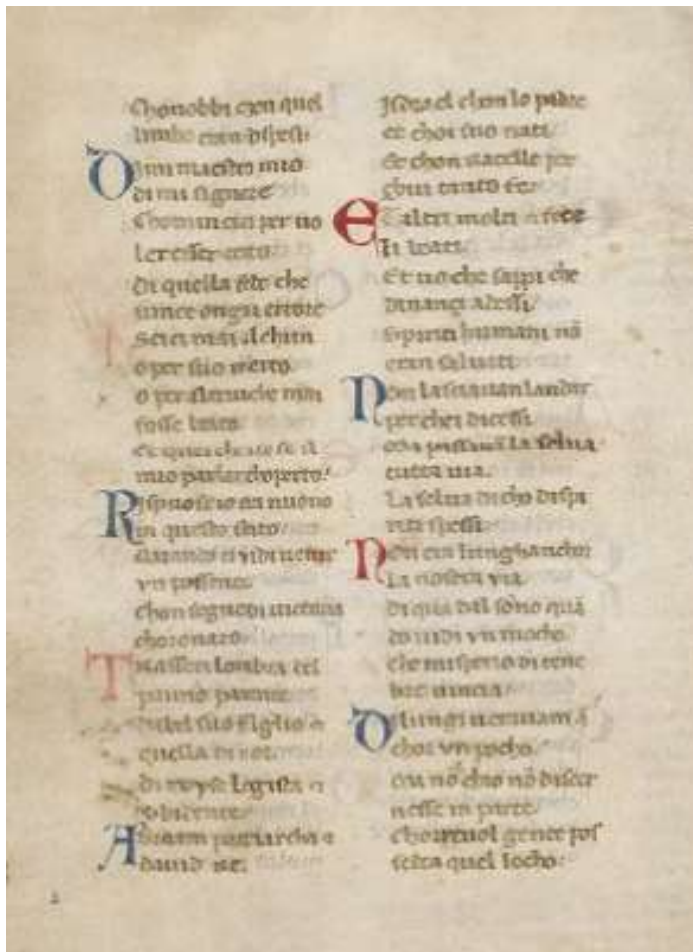 Chonobbi che en quel
limbo eran
Dimi maestro mio
dimi signore
Chominciai per uo
ler esser certo
di quella fede che
uince ongni errore
alchun
o per suo merto
o per altrui che
fosse beato
Et quei che
mio parlar choperto
Rispuose io era nuouo
in questo stato
quando ci vidi uenire
vn possente
chon segno di uictoria
choronato
Trasseci lombra del
primo parente
dabel suo figlio e
quella di noe
di moyse legista e
obidente
Abraam patriarcha e
dauid re
Isdrael chon lo padre
et choi suo nati
Et chon rachelle per
chui tanto fe
E altri molti e fece
li beati
Et uo che sappi che
dinanzi adessi
Spiriti humani nõ
eran saluati
Non lasciauan landar
perchei dicessi
ma passauã la selua
tutta uia
La selua dicho di spi
riti spessi
Non era lungha anchor
la nostra via
di qua dal sõno quã
do uidi vn fuocho
che misperio di tene
bre uincia
Di lungi uerauam ã
chor vn pocho
ma nõ chio nõ discer
nesse in parte
Choreuol gente pos
sedea quel locho